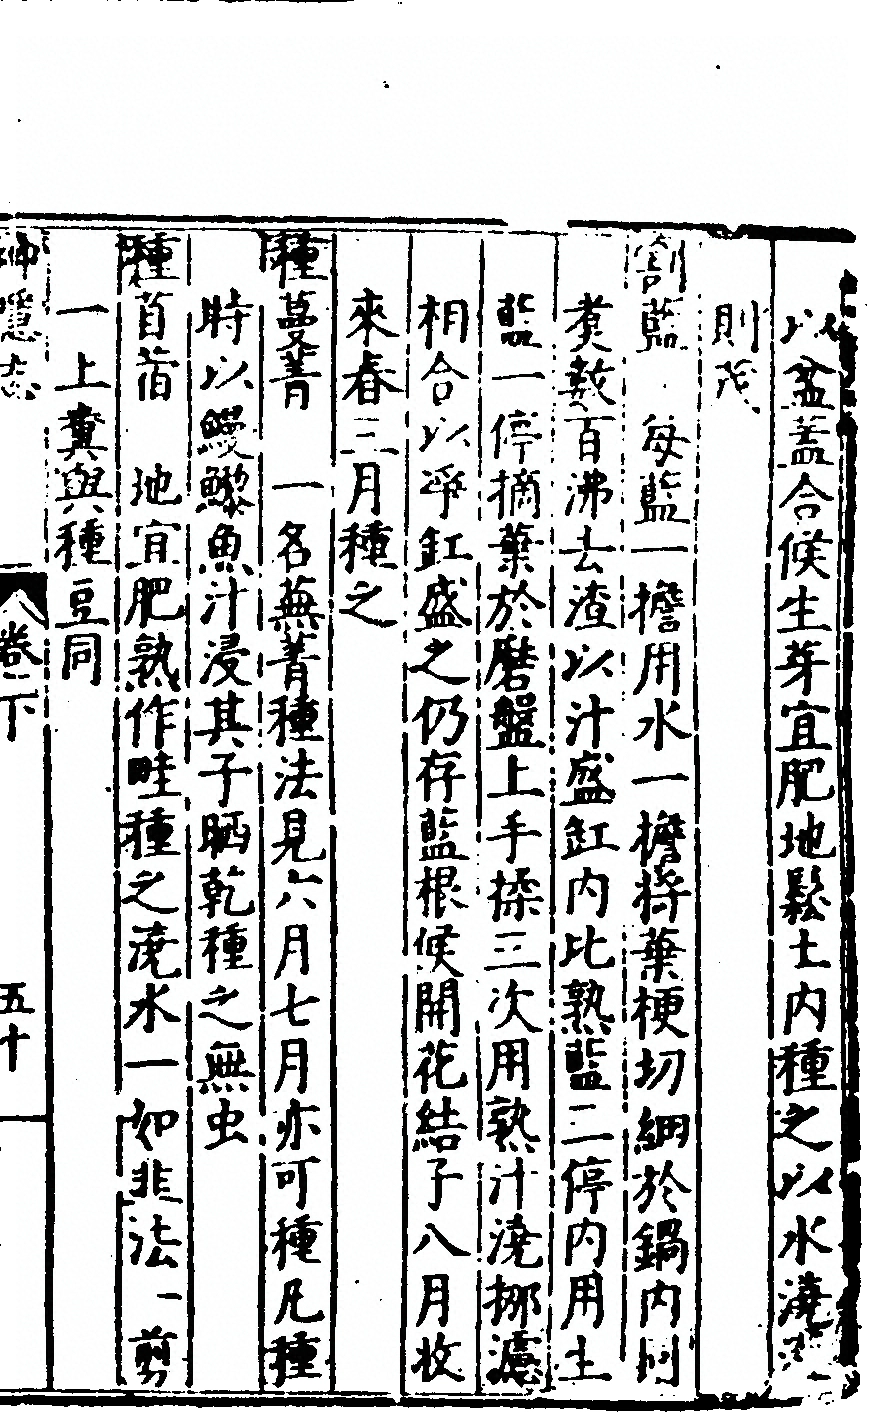 以盆蓋合候生芽宜肥地鬆土内種之以水澆
則茂
割藍 每藍一擔用水一擔將葉梗切細於鍋内同
煑數百沸去渣以汁盛缸内比熟藍二停内用生
藍一停摘葉於磨盤上手揉三次用熟汁澆挪濾
相合以净缸盛之仍存藍根候開花結子八月收
來春三月種之
種蔓菁 一名蕪菁種法見六月七月亦可種凡種
時以鰻鱺魚汁浸其子晒乾種之無虫
種苜蓿 地宜肥熟作畦種之澆水一如韭法一剪
一上糞與種豆同
神隱志 卷下 五十一